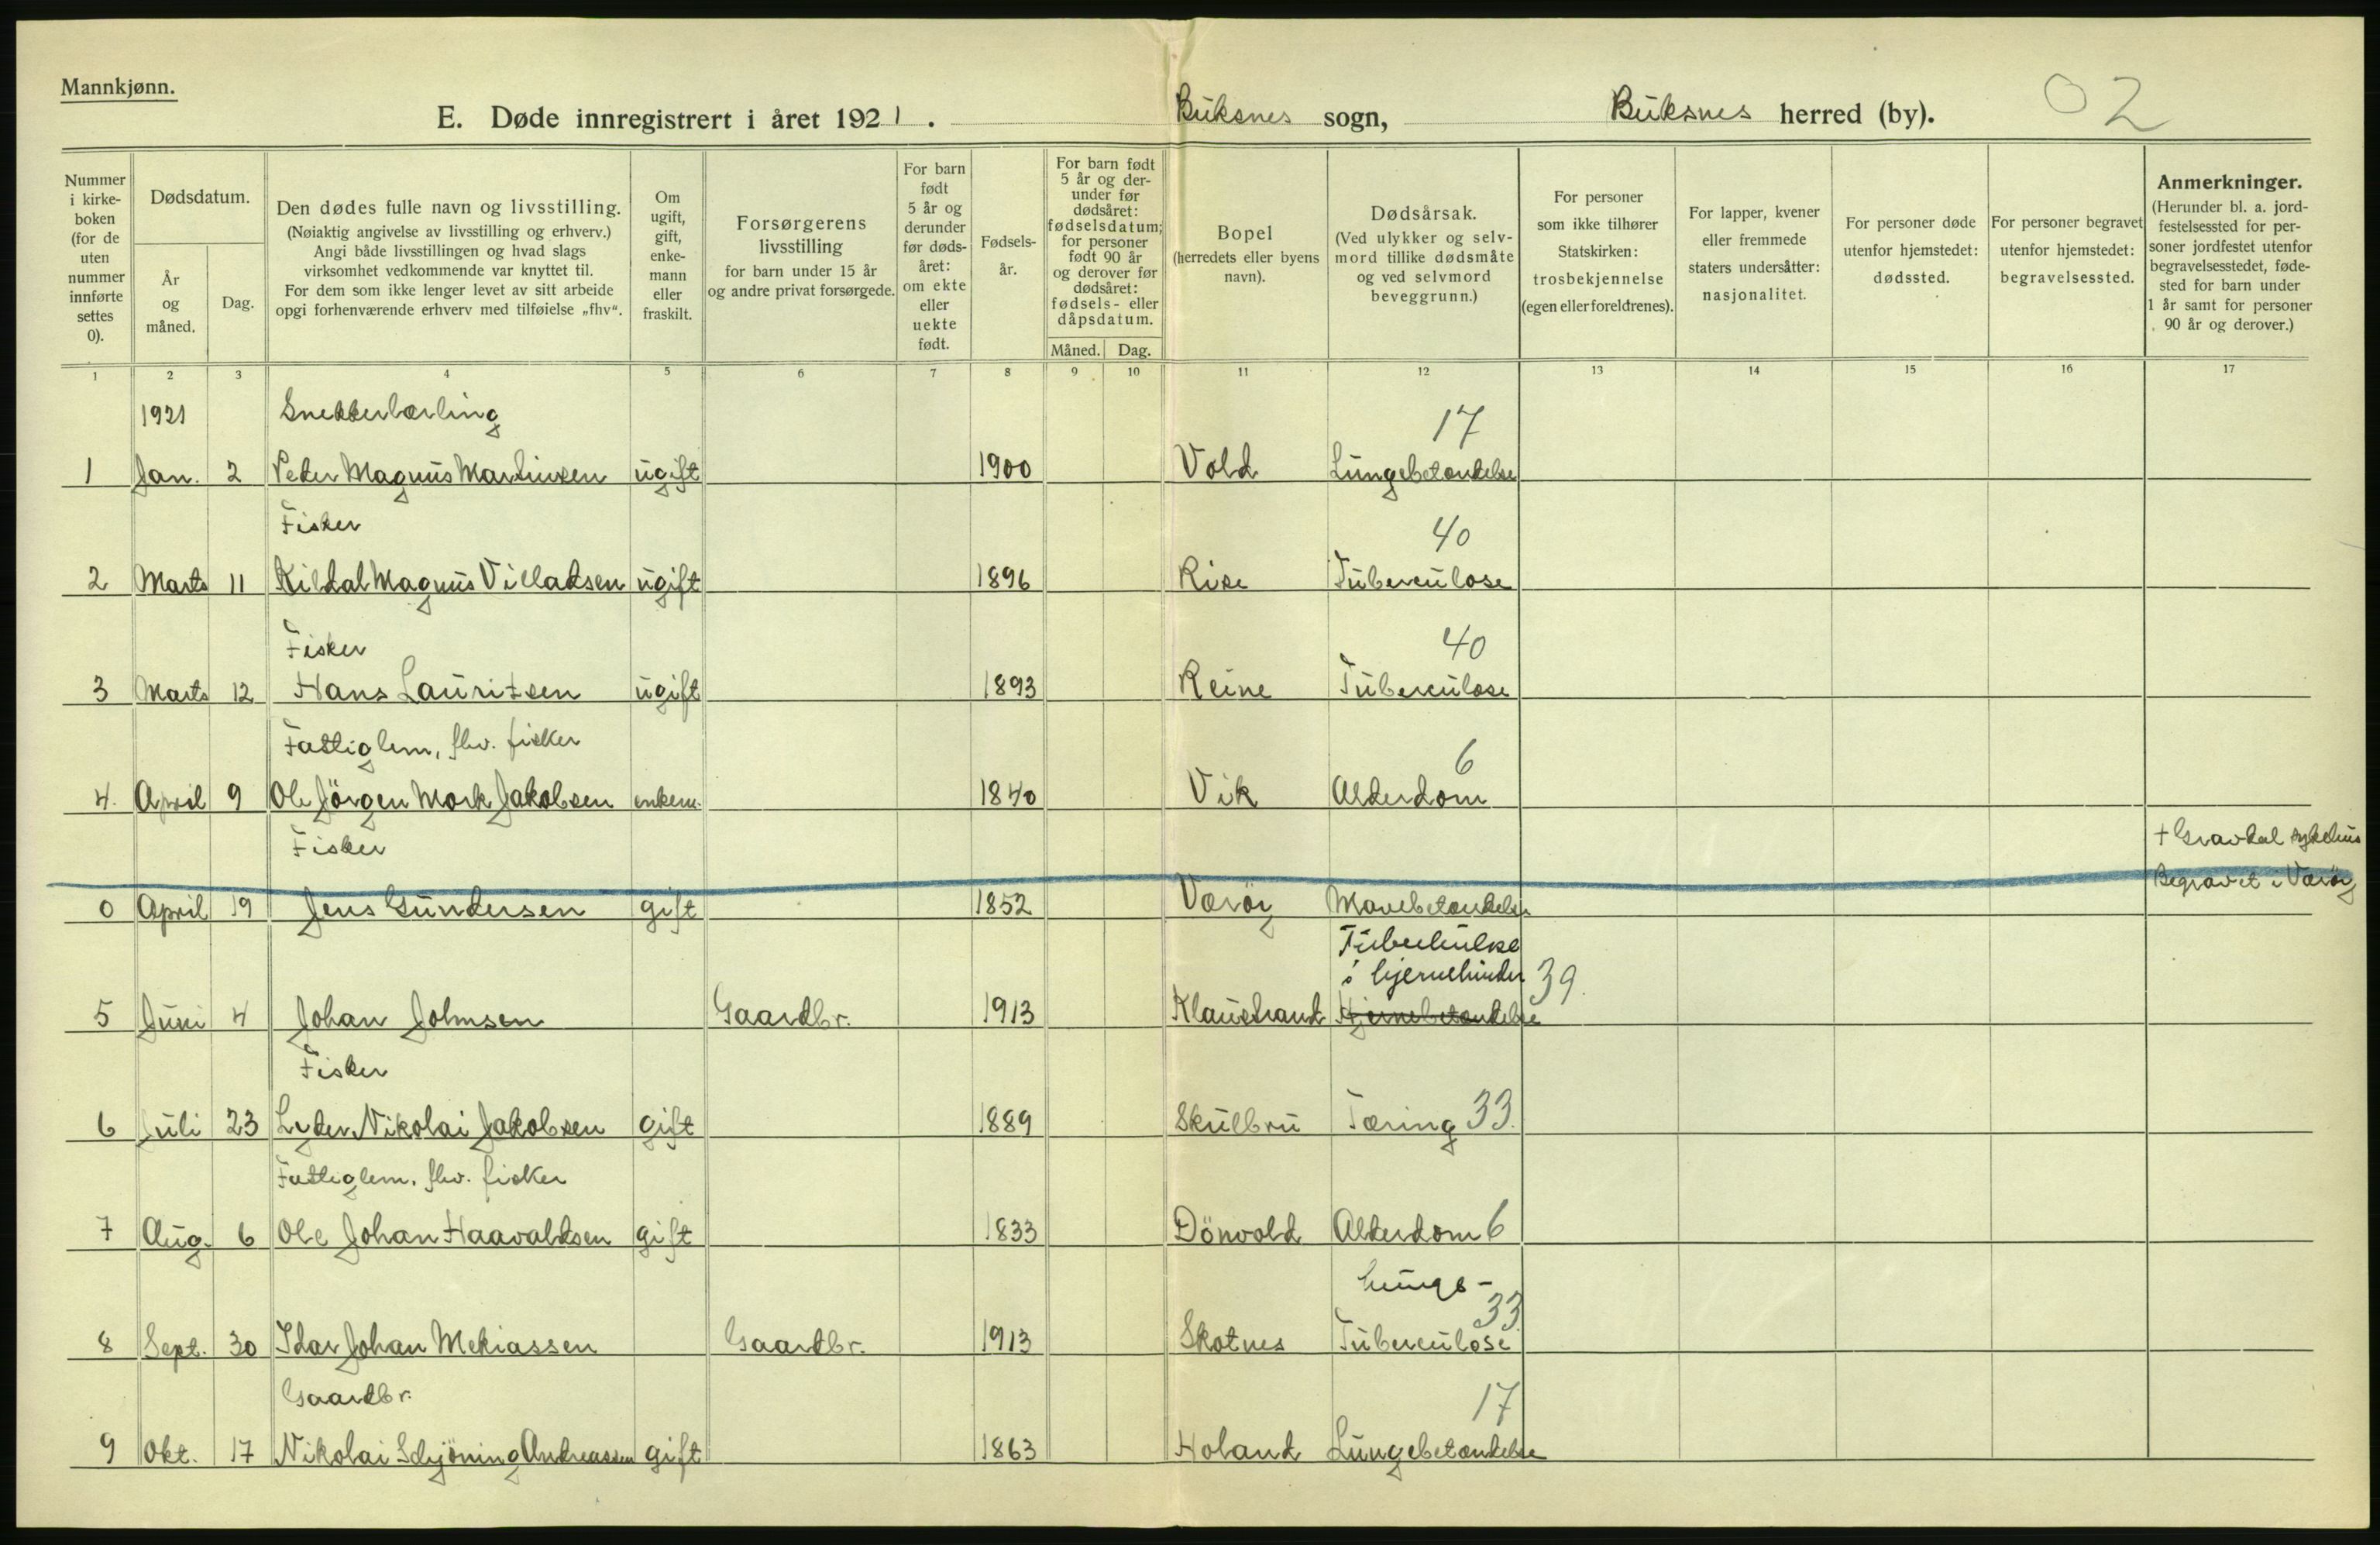 Mannkjønn.
E. Døde innregistrert i året 1921. Buksnes sogn, Buksnes herred (by). 02
Nummer i kirke-boken (for de uten nummer innførte settes 0).
Dødsdatum.
År og måned.
Dag.
Den dødes fulle navn og livsstilling.
(Nøiaktig angivelse av livsstilling og erhverv.)
Angi både livsstillingen og hvad slags
virksomhet vedkommende var knyttet til.
For dem som ikke lenger levet av sitt arbeide
opgi forhenværende erhverv med tilføielse „fhv“.
Om ugift, gift, enke-mann eller fraskilt.
Forsørgerens livsstilling
for barn under 15 år
og andre privat forsørgede.
For barn født 5 år og derunder før døds-året: om ekte eller uekte født.
Fødsels-år.
For barn født 5 år og der-under før dødsåret: fødselsdatum; for personer født 90 år og derover før dødsåret: fødsels- eller dåpsdatum.
Måned. Dag.
Bopel
(herredets eller byens navn).
Dødsårsak.
(Ved ulykker og selv-mord tillike dødsmåte og ved selvmord beveggrunn.)
For personer som ikke tilhører Statskirken: trosbekjennelse (egen eller foreldrenes).
For lapper, kvener eller fremmede staters undersåtter: nasjonalitet.
For personer døde utenfor hjemstedet: dødssted.
For personer begravet utenfor hjemstedet: begravelsessted.
Anmerkninger.
(Herunder bl. a. jord-festelsessted for per-soner jordfestet utenfor begravelsesstedet, føde-sted for barn under 1 år samt for personer 90 år og derover.)
1 2 3 4 5 6 7 8 9 10 11 12 13 14 15 16 17
1921 Snekkerlærling 17
1 Jan. 2 Peder Magnus Martinsen ugift 1900 Vold Lungebetændelse
Fisker 40
2 Marts 11 Kildal Magnus Villadsen ugift 1896 Rise Tuberculose
Fisker 40
3 Marts 12 Hans Lauritsen ugift 1893 Reine Tuberculose
Fattiglem, fhv. fisker 6
4. April 9 Ole Jörgen Mork Jakobsen enkem. 1840 Vik Alderdom
Fisker + Gravdal sykehus
Begravet i Værøy
0 April 19 Jens Gundersen gift 1852 Værøy Mavebetændelse
Tuberkulose
i hjernehinden 39.
5 Juni 4 Johan Johnsen Gaardbr. 1913 Klaustrand Hjernebetændelse
Fisker
6 Juli 23 Lyder Nikolai Jakobsen gift 1889 Skulbru Tæring 33.
Fattiglem. fhv. fisker
7 Aug. 6 Ole Johan Haavaldsen gift 1833 Dönvold Alderdom 6
Lunge-
33
8 Sept. 30 Idar Johan Mekiassen Gaardbr. 1913 Skotnes Tuberculose
Gaardbr. 17
9 Okt. 17 Nikolai Schjöning Andreassen gift 1863 Holand Lungebetændelse